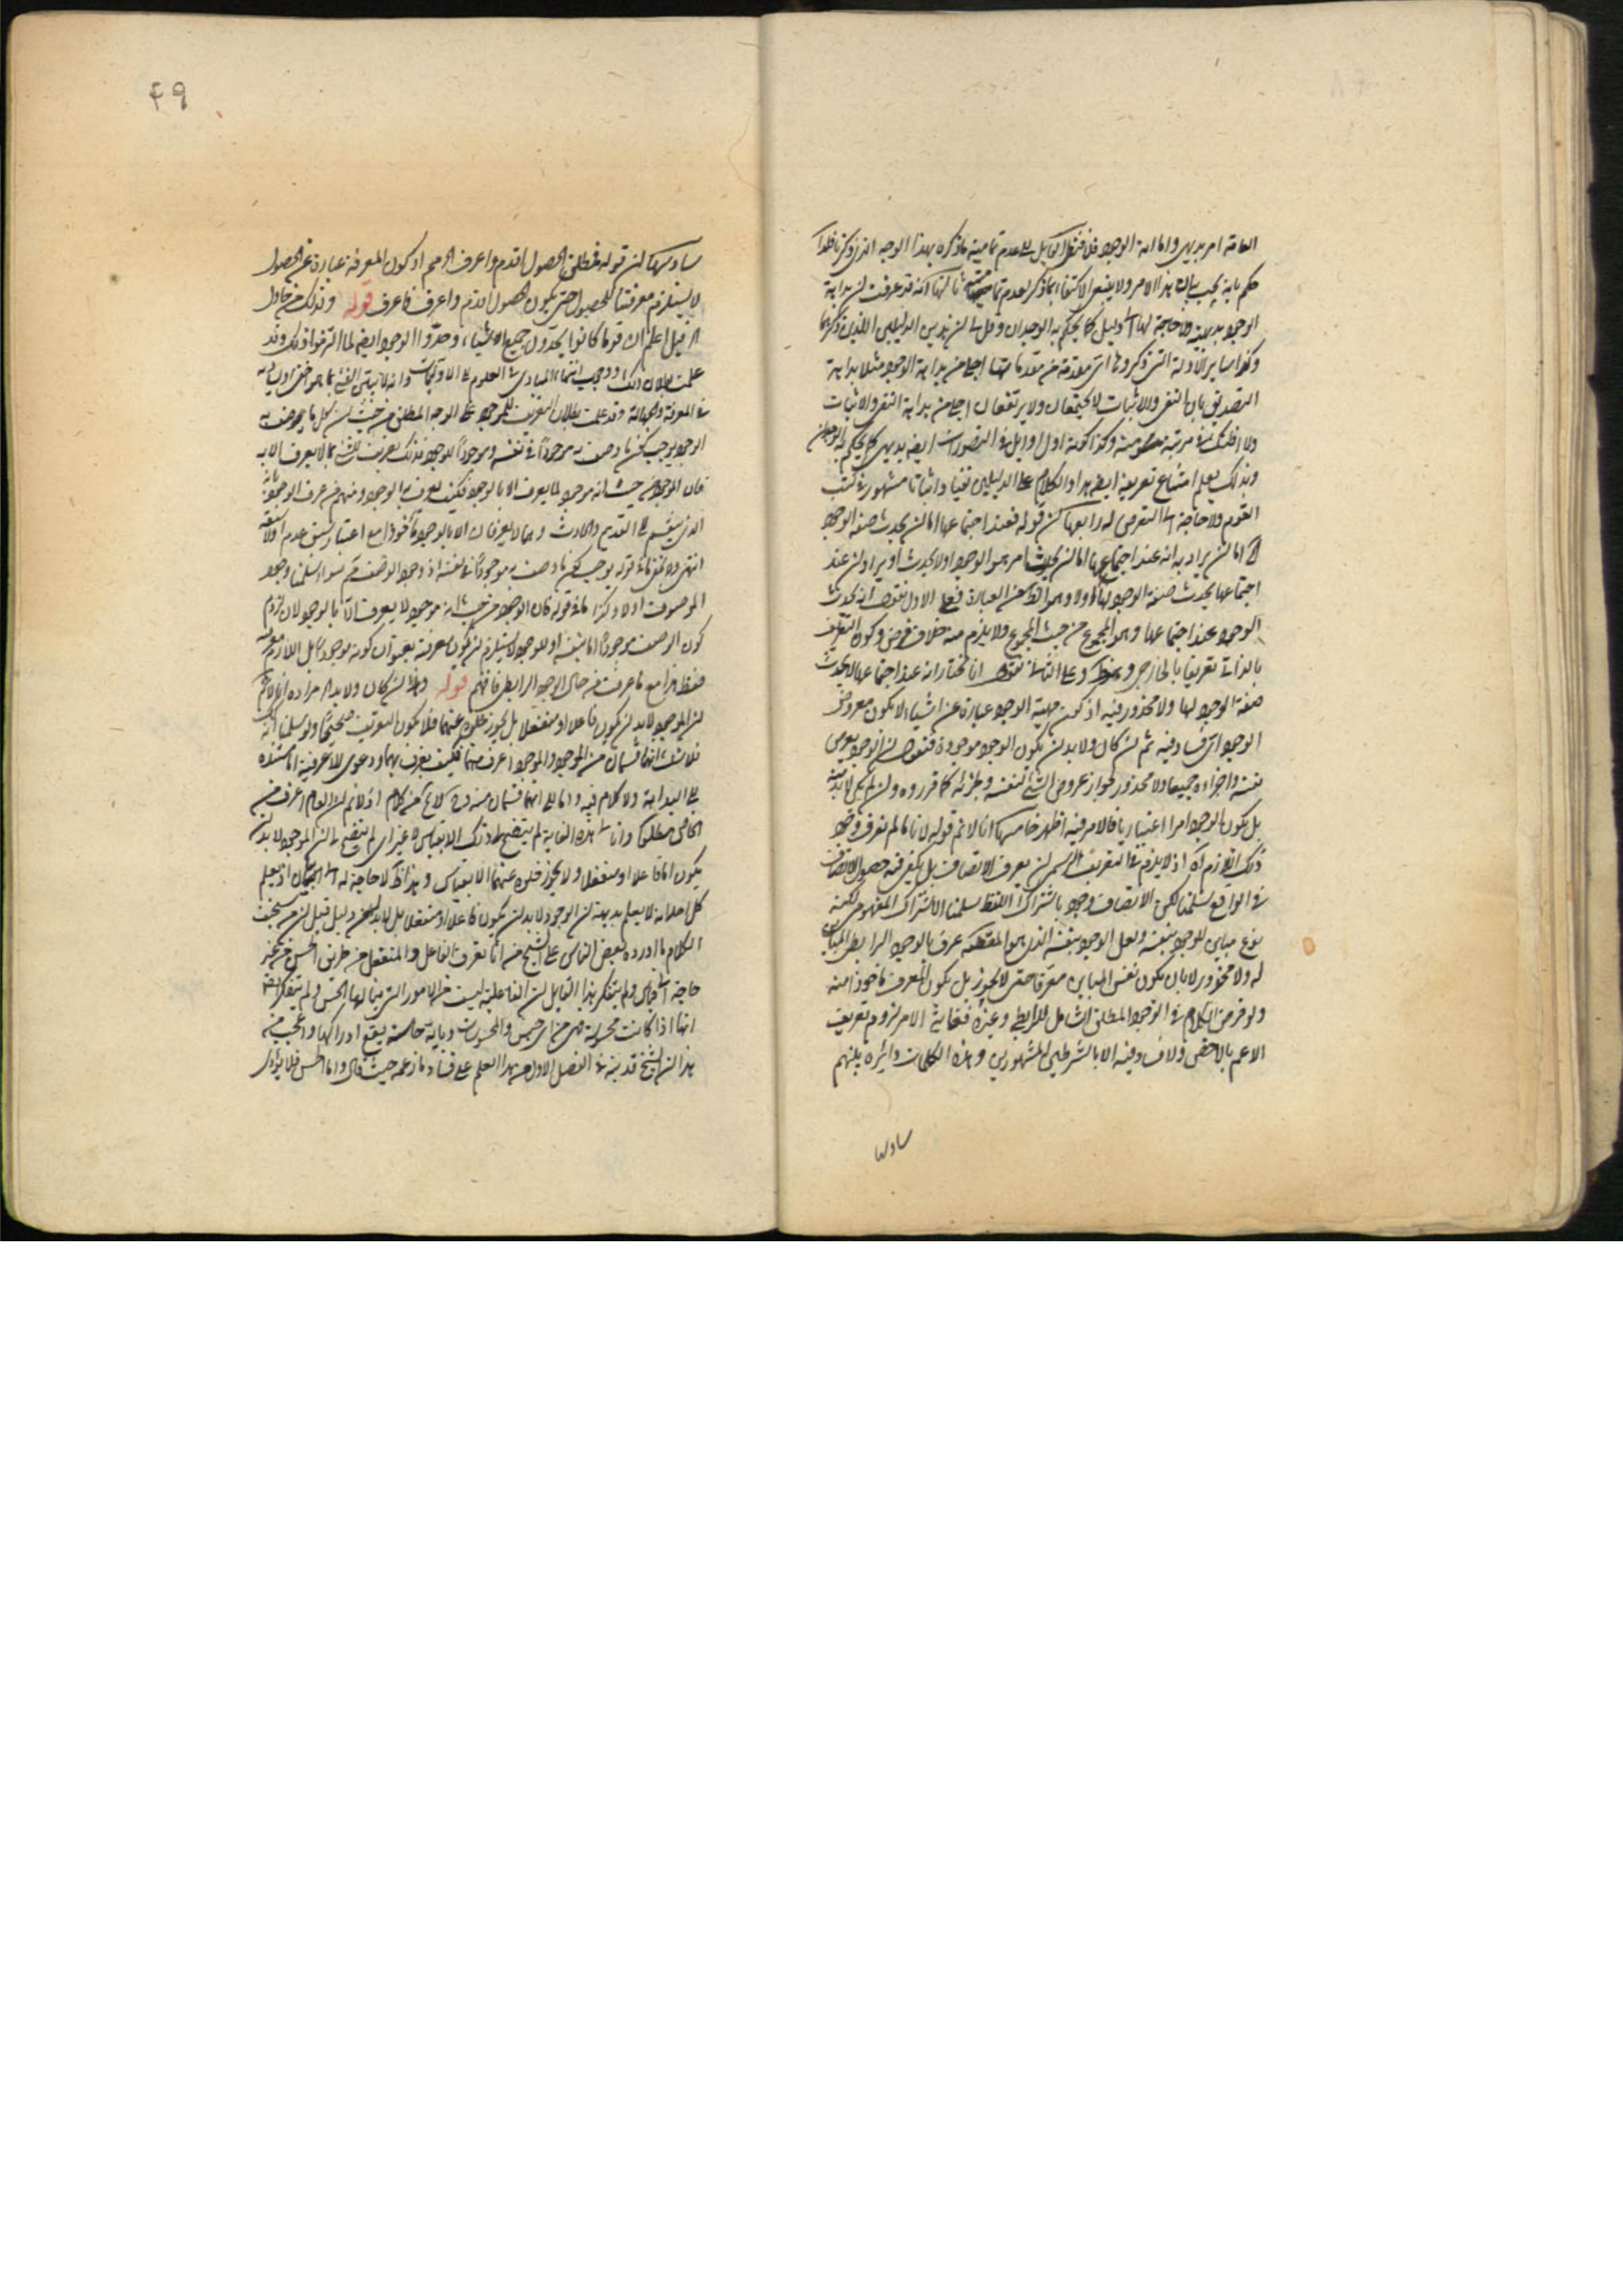 العامة امر بديهي واما انه الوجود فلا فنقل القايل بعدم تمامية ما ذكره بهذا الوجه الذي ذكرنا فلذا
حكم بانه يجب بيان هذا الامر ولا ينبغي الاكتفاء بما ذكر لعدم تماميته ثالثها انه قد عرفت ان بداهة
الوجود بديهية ولا حاجة لها الى دليل كما يحكم به الوجدان وقل ان هذين الدليلين اللذين ذكرهما
وكذا ساير الادلة التي ذكروها اي مقدمة من مقدماتها اجلى من بداهة الوجود مثلا بداهة
التصديق بان النفي والاثبات لا يجتمعان ولا يرتفعان اجلى من بداهة النفي والاثبات
ولا اقل في مرتبة وكذا كونه اول اوايل في التصورات ايضا بديهي كما يحكم به الوجدان
وبذلك يعلم امتناع تعريفه ايضا هذا والكلام على الدليلين نفيا واثباتا مشهور في كتب
القوم ولا حاجة الى التعرض له رابعها ان قوله فعند اجتماعها اما ان يحدث صفة الوجود
اما ان يراد به انه عند اجتماعها اما ان يحدث امر هو الوجود او لا يحدث او يراد ان عند
اجتماعها يحدث صفة الوجود لها اولا وهو الظاهر من العبارة فعلى الاول نقول انه يحدث
الوجود عند اجتماعها وهو المجموع من حيث المجموع ولا يلزم منه خلاف فرض وكون التعريف
بالذاتي تعريفا بالخارجي وعلى الثاني نقول انا نختار انه عند اجتماعها لا يحدث
صفة الوجود لها ولا محذور فيه اذ كون مهية الوجود عبارة عن اشياء لا يكون معروض
الوجود اي فساد فيه ثم ان كان ولا بد ان يكون الوجود موجودة فنقول ان الوجود يعرض
نفسه واجزاءه جميعا ولا محذور لجواز عروض الشئ لنفسه وجزئه كما قرروه وان لم يكن لابد منه
بل يكون الوجود امرا اعتباريا فالامر فيه اظهر خامسها انا لا نم قوله لانا ما لم نعرف وجود
ذلك اللازم له اذ لا يلزم في التعريف الرسمي ان يعرف الاتصاف بل يكفي فيه حصول الاتصاف
في الواقع سلمنا لكن الاتصاف وجود باشتراك اللفظ سلمنا الاشتراك المفهومي لكنه
نوع مباين للوجود بنفسه ولعل الوجود بنفسه الذي هو المقصد عرف بالوجود الرابطي المباين
له ولا محذور لا بان يكون نفس المباين معرفا حتى لا يجوز بل يكون المعرف ماخوذا منه
ولو فرض الكلام في الوجود المطلق الشامل للرابطي وغيره فغاية الامر لزوم تعريف
الاعم بالاخص ولا فساد فيه الا بالشرطين المشهورين وهذه الكلمات دايرة بينهم
سادسها
٤٩
سادسها ان قوله مطلق الحصول اقدم واعرف الخ مم اذ كون المعرفة عبارة عن الحصول
لا يستلزم معرفتنا للحصول حتى يكون الحصول اقدم واعرف فاعرف قوله وكذلك من حاول
قيل اعلم ان قوما كانوا يحدون جميع الاشياء وحدوا الوجود ايضا لما التزموا ذلك وقد
علمت بطلان ذلك ووجوب انتهاء المبادي في العلوم الى الاوليات وانه لا يبتني الشئ بما هو اخفى او يساويه
في المعرفة والجهالة وقد علمت بطلان التعريف للموجود على الوجه المطلق من حيث ان كل ما يوصف به
الوجود يوجب كون ما وصف به موجودا في نفسه وموجودا للوجود فذلك تعريف للشئ بما لا يعرف الا به
فان الموجود من حيث انه موجود لما يعرف الا بالوجود فكيف يعرف به الوجود ومنهم من عرف الوجود بانه
الذي ينقسم الى القديم والحادث وهما لا يعرفان الا بالوجود ماخوذا مع اعتبار سبق عدم او لا سبقه
انتهى ولا يخفى ما في قوله يوجب كون ما وصف به موجودا في نفسه اذ وجود الوصف مم سواء سلمنا وجود
الموصوف او لا وكذا ما في قوله فان الموجود من حيث انه موجود لا يعرف الا بالوجود لان لزوم
كون الوصف موجودا اما بنفسه او للوجود لا يستلزم ان يكون معرفته بعنوان كونه موجودا بل اللازم معرفته
فقط هذا مع ما عرفت من حال الوجود الرابطي فافهم قوله وهذا ان كان ولا بد الخ مراده انا لا نم
ان الموجود لابد ان يكون فاعلا او منفعلا بل يجوز خلوه عنهما فلا يكون التعريف صحيحا ولو سلمنا انه
فلا شك انهما قسمان من الموجود والموجود اعرف منهما فكيف يعرف بهما ودعوى الاعرفية اما مستندة
الى البداهة ولا كلام فيه واما الى انهما قسمان منه وح كلام اذ لا نم ان العام اعرف من
الخاص مطلقا وانا الى هذه الغاية لم يتضح لي ذلك الا بقياس لا غير اي لم يتضح لي ان الموجود لا بد ان
يكون اما فاعلا او منفعلا ولا يجوز خلوه عنهما الا بقياس وهذا لا حاجة له الى البيان اذ يعلم
كل احد انه لا يعلم بديهة ان الموجود لا بد ان يكون فاعلا او منفعلا بل لابد له من دليل قيل ان من سخيف
الكلام ما اورده بعض الناس على الشيخ من انا نعرف الفاعل والمنفعل من طريق الحس من غير
حاجة الى قياس ولم يتفكر هذا القايل ان الفاعلية ليست من الامور التي ينالها الحس ولم يتفكر ايضا
انها اذا كانت محسوسة من اي جنس من المحسوسات وباية حاسة يقع ادراكها واعجب من
هذا ان الشيخ قد بينه في الفصل الاول من هذا العلم على فساد ما زعمه حيث قال واما الحس فلا يؤدي